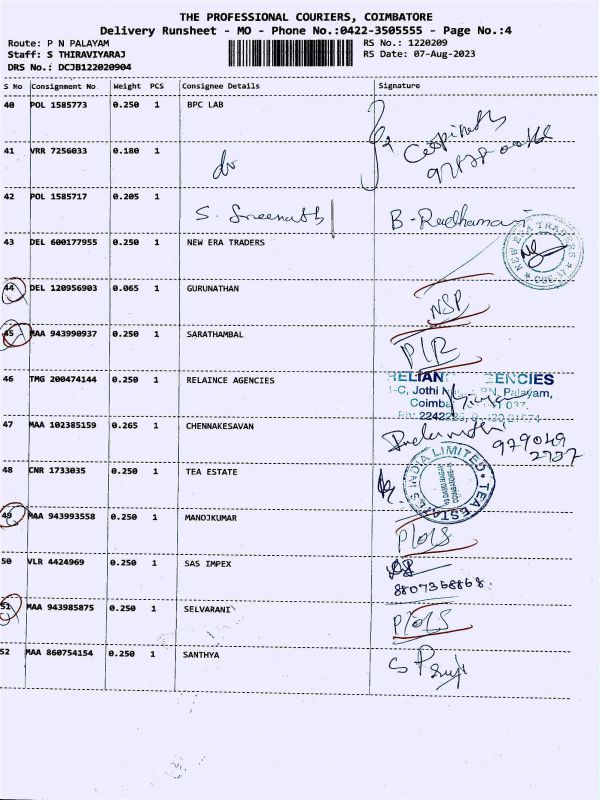 THE PROFESSIONAL COURIERS, COIMBATORE
Delivery Runsheet - MO - Phone No.:0422-3505555 - Page No.:4
Route: P N PALAYAM RS No.: 1220209
Staff: S THIRAVIYARAJ RS Date: 07-Aug-2023
DRS No.: DCJB122020904
S No Consignment No Weight PCS Consignee Details Signature
40 POL 1585773 0.250 1 BPC LAB
41 VRR 7256033 0.180 1
42 POL 1585717 0.205 1
S. Sreenath B-Radhamani
43 DEL 600177955 0.250 1 NEW ERA TRADERS
NEW ERA TRADERS
44 DEL 120956903 0.065 1 GURUNATHAN
NSP
45 MAA 943990937 0.250 1 SARATHAMBAL
P/R
46 TMG 200474144 0.250 1 RELAINCE AGENCIES
1-C, Jothi Palayam,
47 MAA 102385159 0.265 1 CHENNAKESAVAN
979049
2737
48 CNR 1733035 0.250 1 TEA ESTATE
TEA ESTATES INDIA LIMITED
49 MAA 943993558 0.250 1 MANOJKUMAR
P/O/S
50 VLR 4424969 0.250 1 SAS IMPEX
8807368868.
51 MAA 943985875 0.250 1 SELVARANI
P/O/S
52 MAA 860754154 0.250 1 SANTHYA